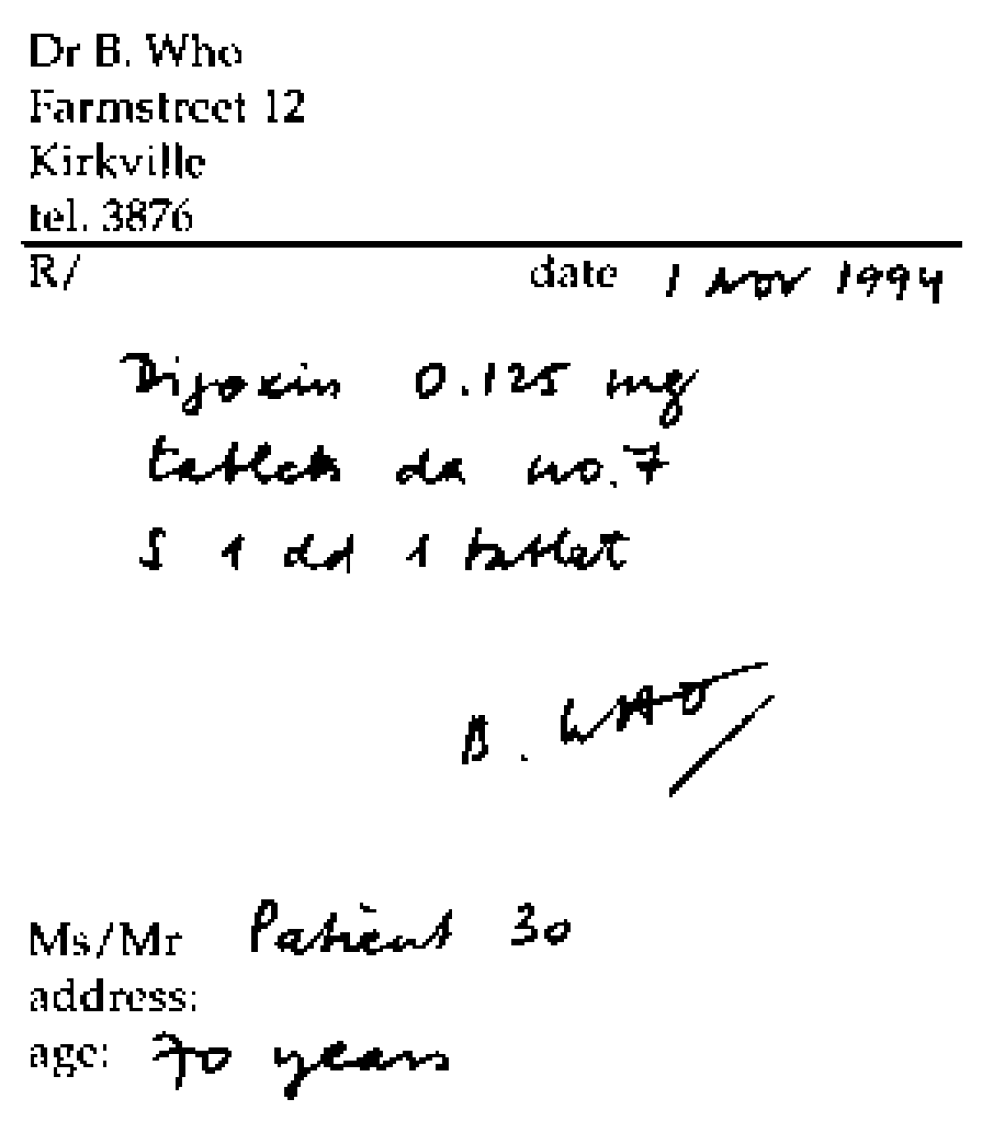 Dr B. Who
Farmstreet 12
Kirkville
tel. 3876
R/ date 1 Nov 1994
Digoxin 0.125 mg
tablets da no. 7
S 1 dd 1 tablet
B. WHO
Ms/Mr Patient 30
address:
age: 70 years